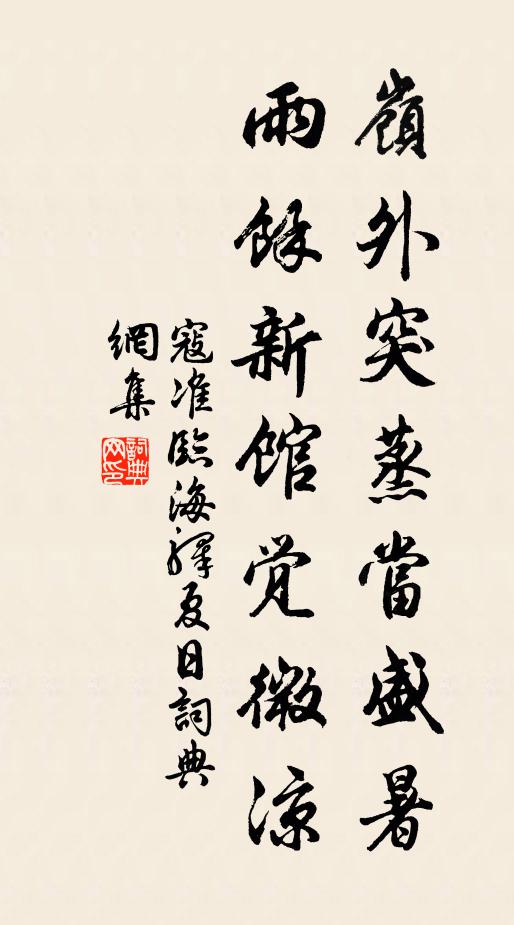 嶺外突蒸當盛暑
雨餘新館覺微涼
寇准臨海驛夏日詞典
網集
詞典
网印